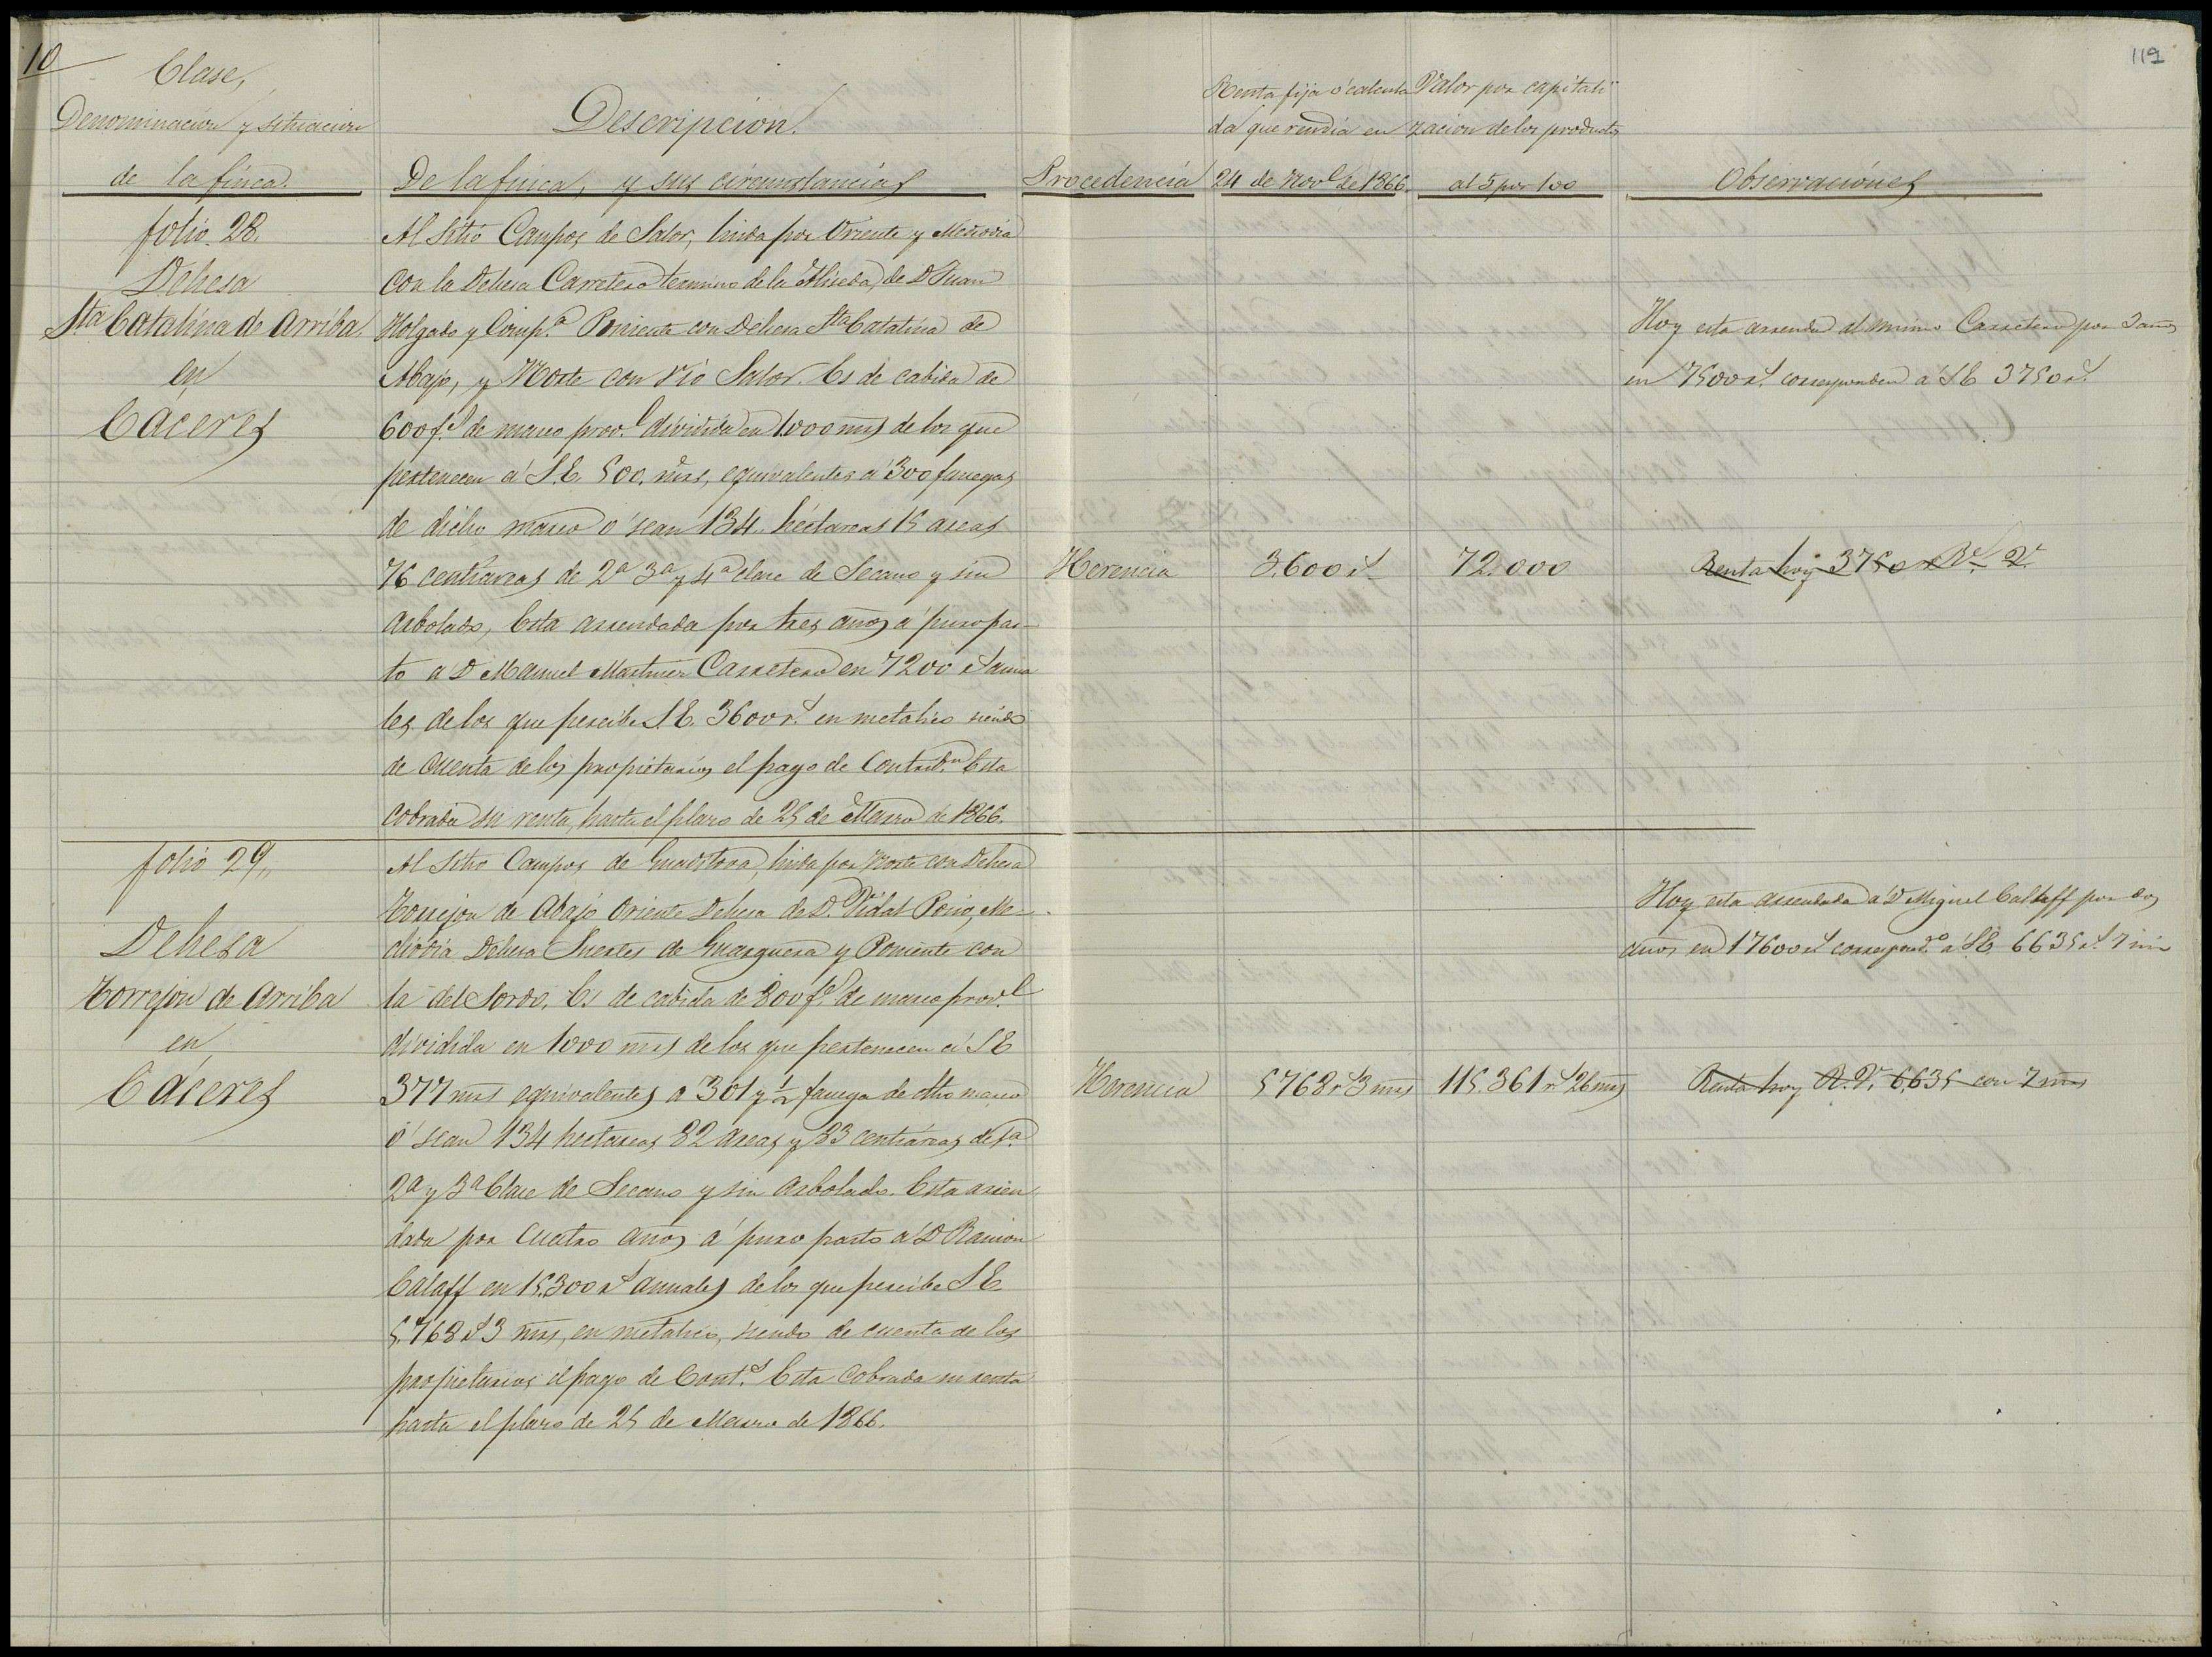 10
119
Clase,
Denominacion y situacion
de la finca.
Descripcion.
De la finca, y sus circunstancias
Procedencia
Renta fija ó calcula
da que rendia en
24 de Novᵉ de 1866
Valor por capitali
zacion de los productos
al 5 por 100
Observaciones
folio 28.
Dehesa
Sta Catalina de Arriba
en
Cáceres
Al sitio Campos de Salor, linda por Oriente y Mediodia
con la Dehesa Carretero termino de la Aliseda de D Juan
Holgado y Comp.ª Poniente con Dehesa Sta Catalina de
Abajo, y Norte con rio Salor. Es de cabida de
600 f.ˢ de marco prov.ˡ dividida en 1.000 mrs de los que
pertenecen á S.E. 500. mrs, equivalentes á 300 fanegas
de dicho marco ó sean 134. héctareas 15 areas
76 centiareas de 2ª 3ª y 4ª clase de Secano y sin
arbolado, Esta arrendada por tres años á puro pas-
to a D Manuel Martinez Carretero en 7200 rˢ anua
les de los que percibe S.E. 3600 rˢ en metalico siendo
de cuenta de los propietarios el pago de Contrib.ⁿ Esta
cobrada su renta, hasta el plazo de 25 de Marzo de 1866.
Herencia
3.600 rˢ
72.000
Hoy esta arrendad al mismo Carretero por 3 años
en 7500 rˢ. corresponden á S E 3750 rˢ.
Renta hoy 3750 Rˢ. Vⁿ.
folio 29,,
Dehesa
Torrejon de Arriba
en
Cáceres
Al Sitio Campos de , linda por Norte con Dehesa
Torrejon de Abajo Oriente Dehesa de D. Vidal , Me-
diodia Dehesa Suertes de y Poniente con
la del Sordo. Es de cabida de 800 fˢ. de marco prov.ˡ
dividida en 1000 mrs de los que pertenecen á S E
377 mrs equivalentes a 301 y ½ fanega de dho marco
ó sean 134 hectareas 82 areas y 83 centiáreas de 1ª.
2ª y 3ª Clase de Secano y sin Arbolado. Esta arren
dada por Cuatro años á puro pasto á D Ramon
Calaff en 15.300 rˢ anuales de los que percibe S E.
5.768 rˢ 3 mrs, en metalico, siendo de cuenta de los
propietarios el pago de Cont.ˢ Esta cobrada su renta
hasta el plazo de 25 de Marzo de 1866.
Herencia
5768 rˢ 3 mrs
115.361 rˢ 26 mrs
Hoy esta arrendada á D Miguel Calaff por dos
años en 17600 rˢ correspond.º á S.E. 6635 rˢ. 7 m
Renta hoy R.Vⁿ. 6.635 con 7 mrs